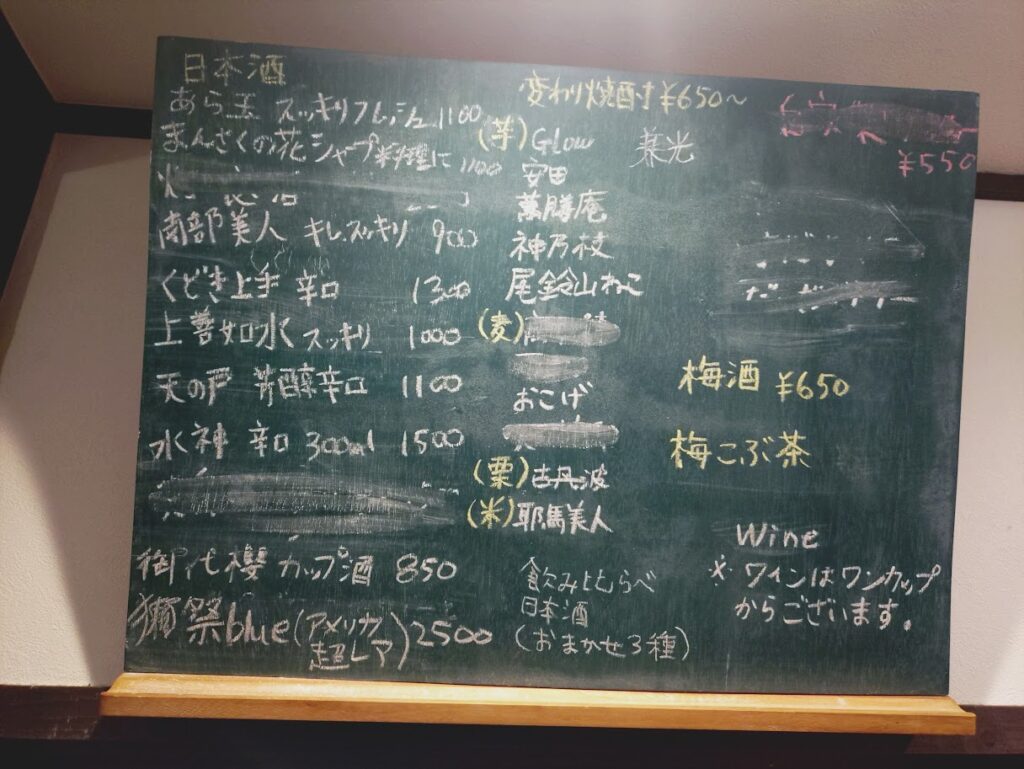 日本酒
あら玉 スッキリフレッシュ 1100
まんさくの花 シャープ 料理に 1100
南部美人 キレ、スッキリ 900
くどき上手 辛口 1300
上善如水 スッキリ 1000
天の戸 芳醇辛口 1100
水神 辛口 300ml 1500
御代櫻 カップ酒 850
獺祭blue (アメリカ 超レア) 2500
変わり焼酎 ¥650~
(芋) Glow
兼光
安田
萬膳庵
神乃杖
尾鈴山ねこ
(麦)
おこげ
(栗) 古丹波
(米) 耶馬美人
飲みくらべ
日本酒
(おまかせ3種)
¥550
梅酒 ¥650
梅こぶ茶
Wine
※ ワインはワンカップ
からございます。